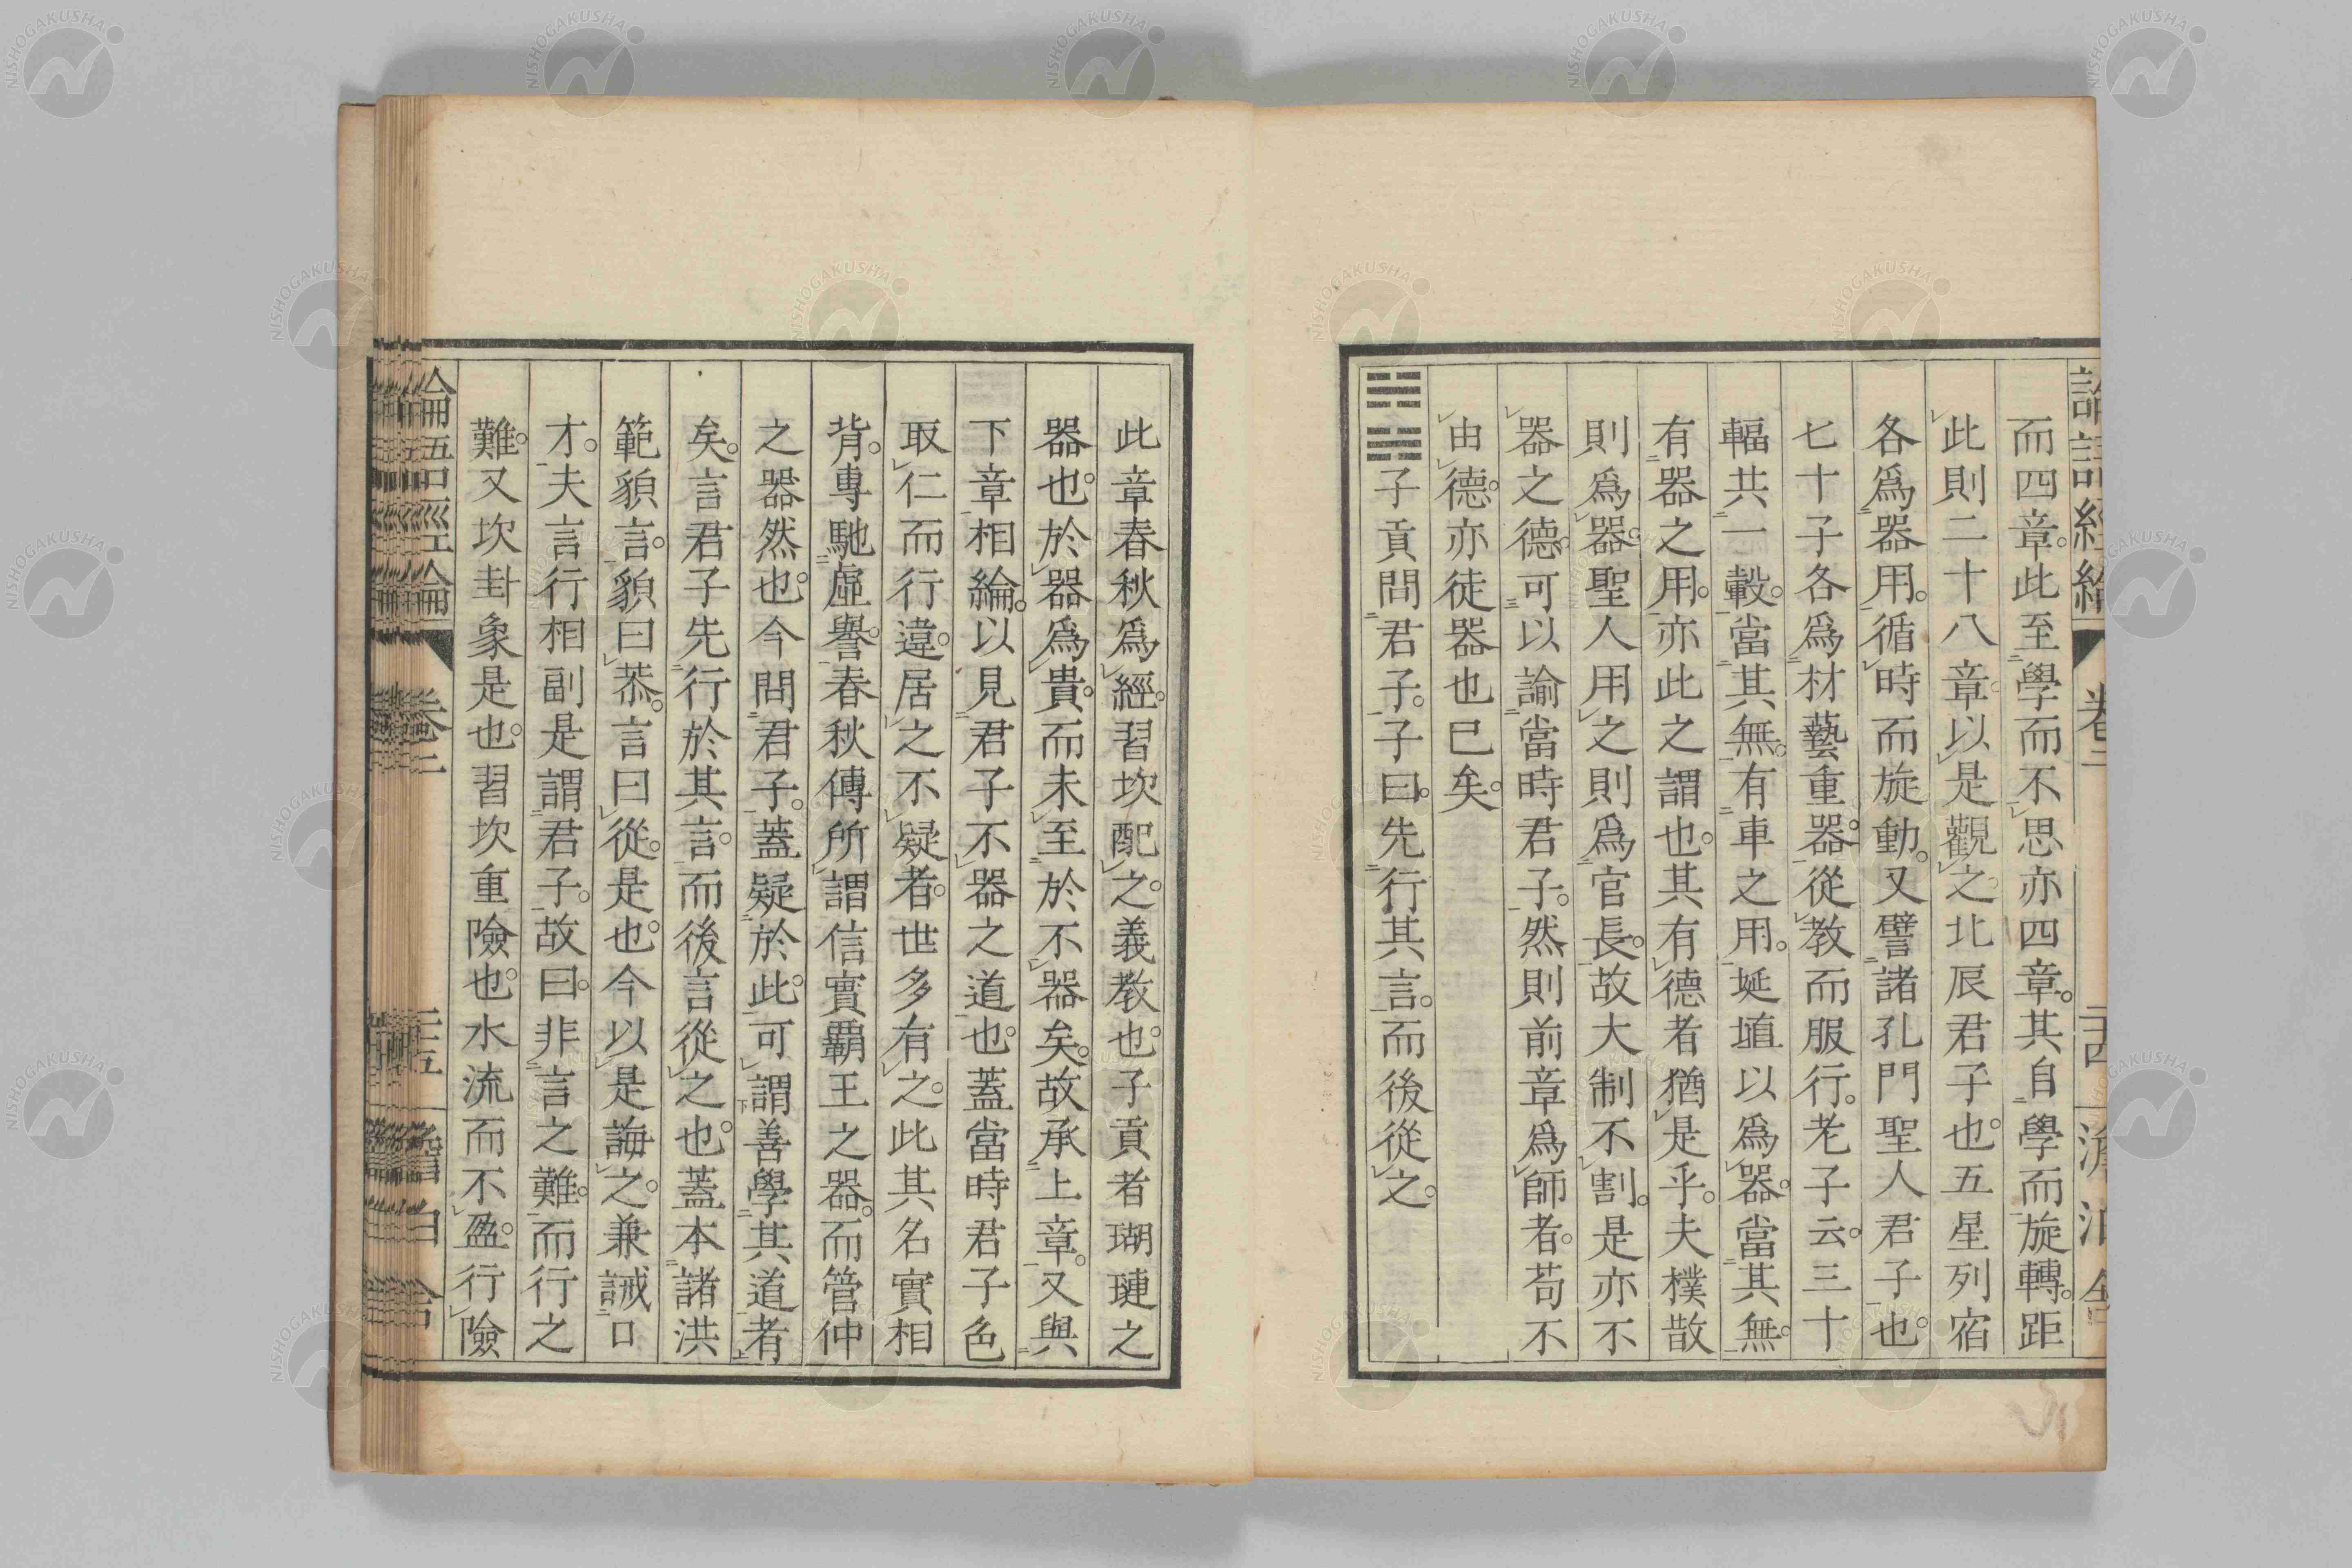 而四章。此至學而不思亦四章。其自學而旋轉。距
此則二十八章。以是觀之。北辰君子也。五星列宿
各爲器用。循時而旋動。又譬諸孔門聖人君子也。
七十子各爲材藝重器。從教而服行。老子云。三十
輻共一轂。當其無。有車之用。埏埴以爲器。當其無。
有器之用。亦此之謂也。其有德者猶是乎。夫樸散
則爲器。聖人用之則爲官長。故大制不割。是亦不
器之德。可以諭當時君子。然則前章爲師者。苟不
由德。亦徒器也已矣。
子貢問君子。子曰。先行其言。而後從之。
此章春秋爲經。習坎配之。義教也。子貢者瑚璉之
器也。於器爲貴。而未至於不器矣。故承上章。又與
下章相綸。以見君子不器之道也。蓋當時君子色
取仁而行違。居之不疑者。世多有之。此其名實相
背。專馳虛譽。春秋傳所謂信實霸王之器。而管仲
之器然也。今問君子。蓋疑於此。可謂善學其道者
矣。言君子先行於其言。而後言從之也。蓋本諸洪
範貌言。貌曰恭。言曰從。是也。今以是誨之。兼誡口
才。夫言行相副是謂君子。故曰。非言之難。而行之
難。又坎卦象是也。習坎重險也。水流而不盈。行險
論語經綸 卷二